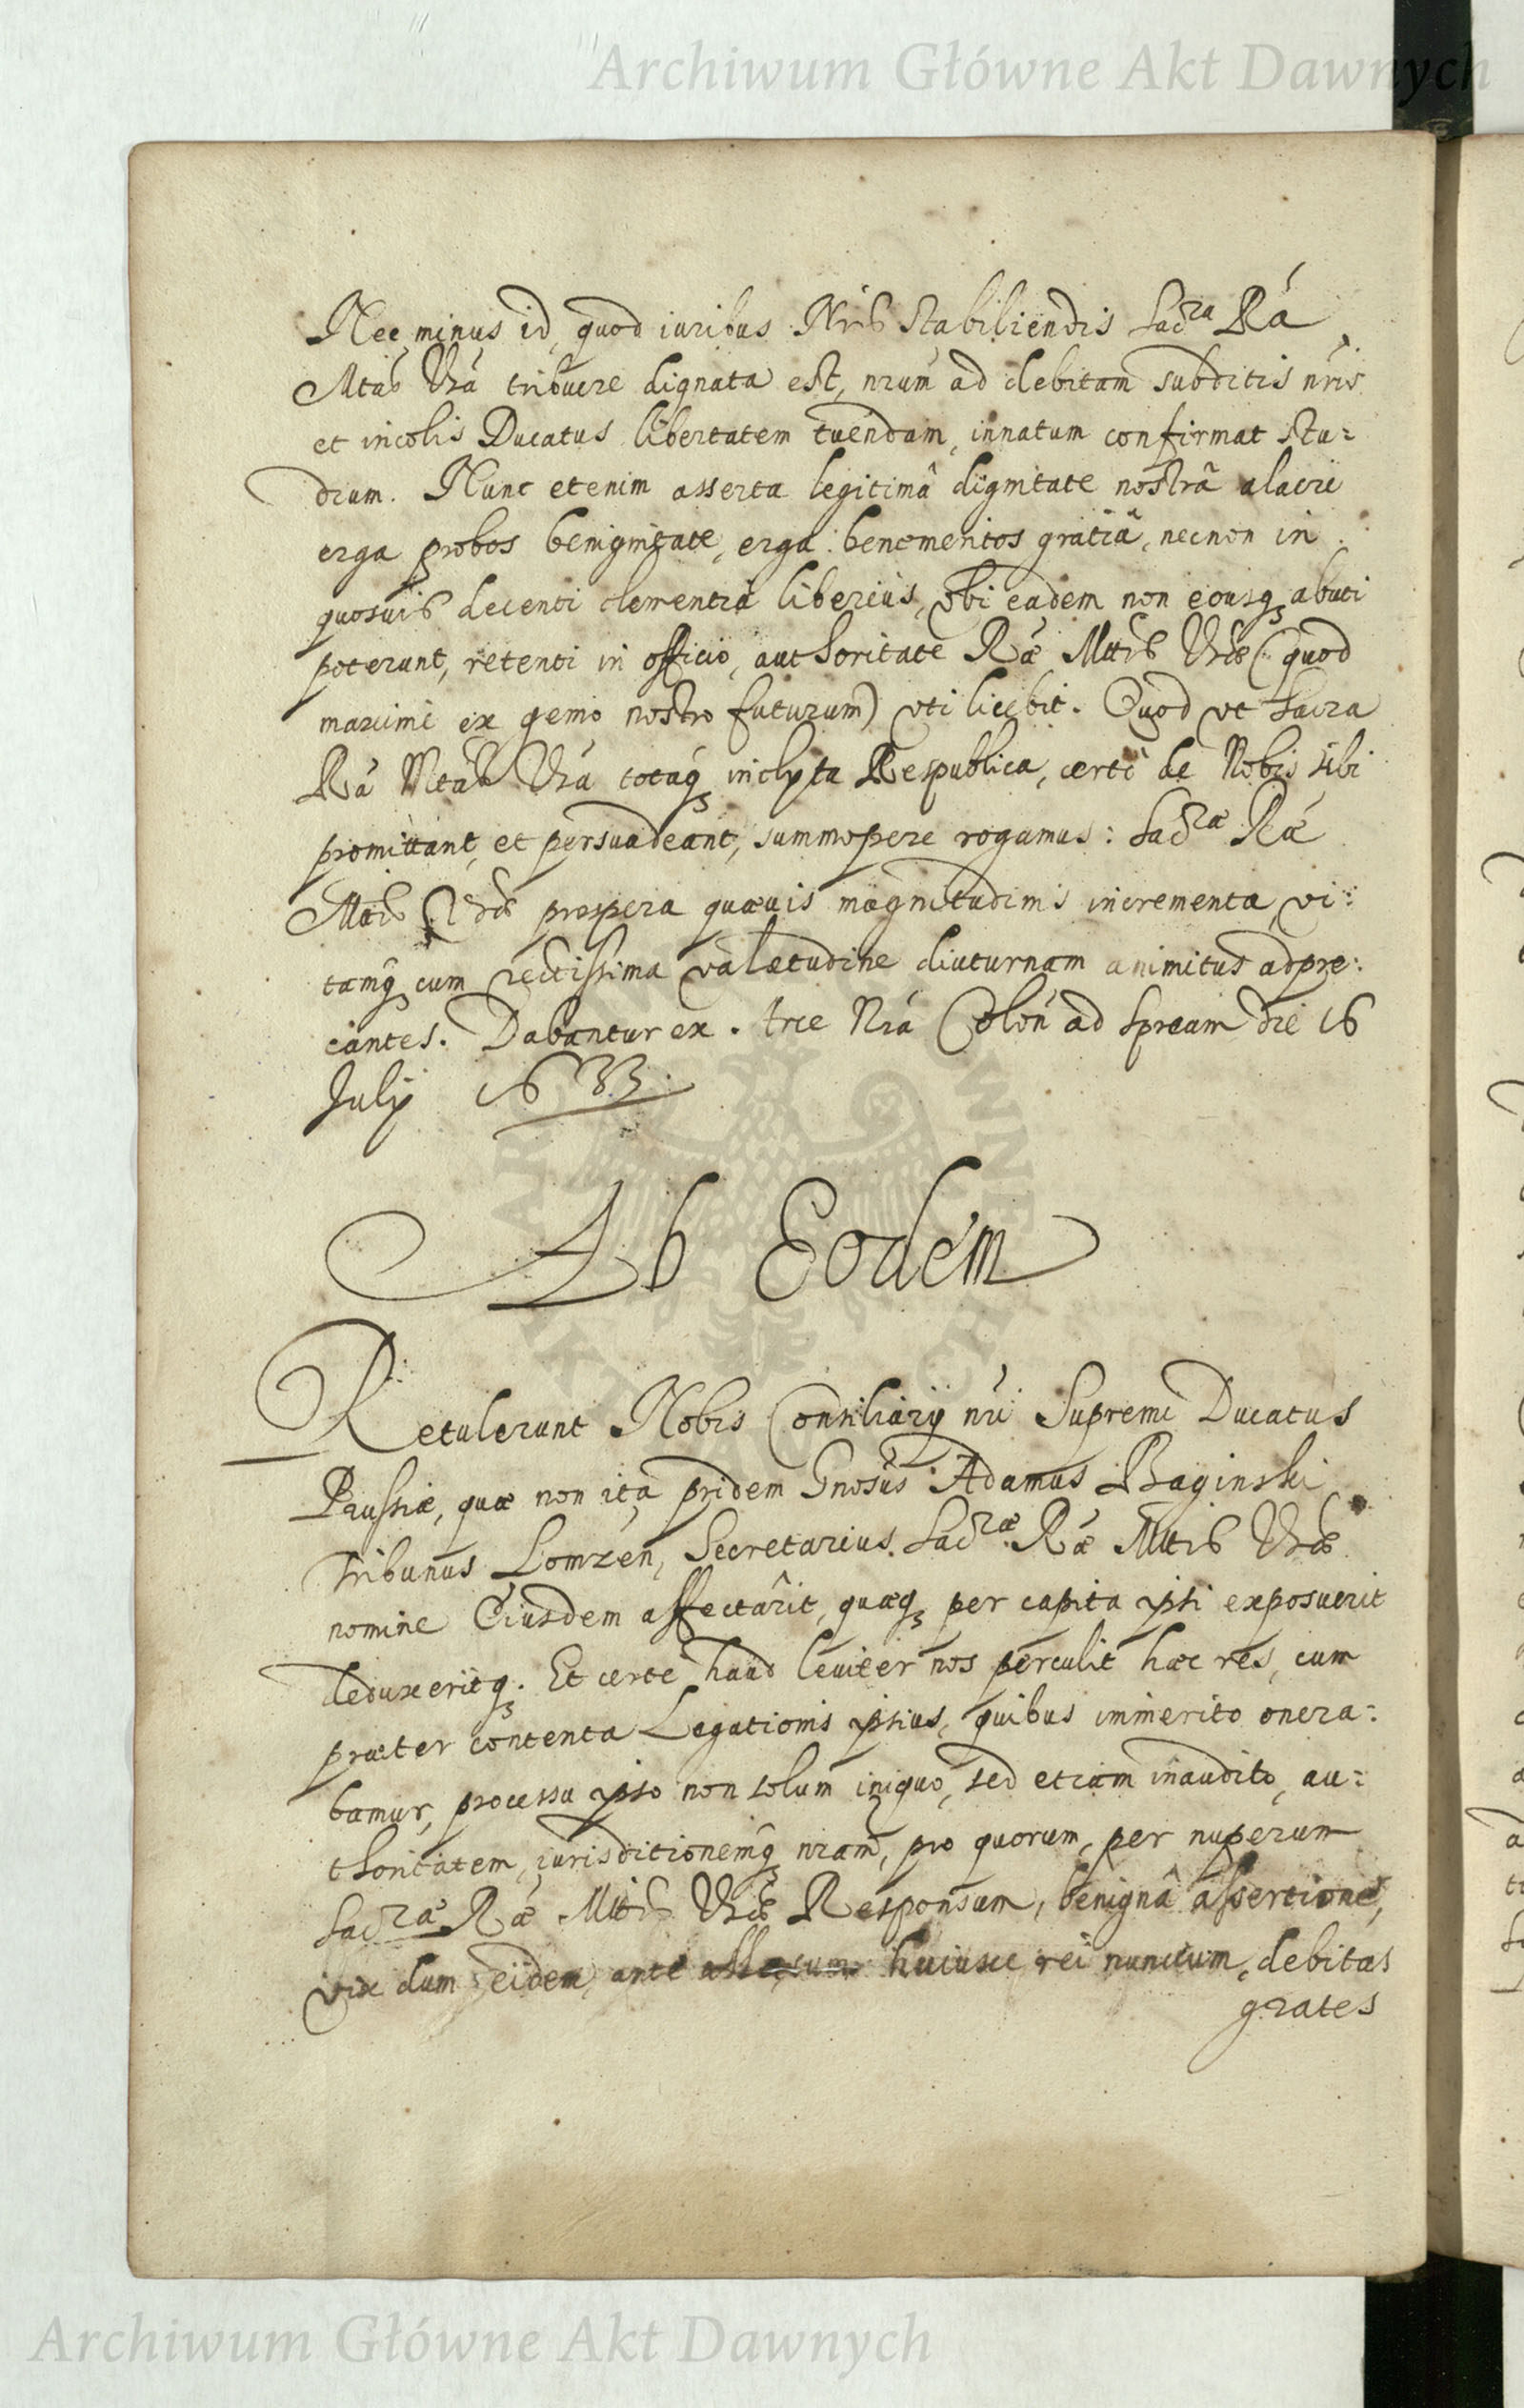 Archiwum Główne Akt Dawnych
Nec minus id, quod iuribus Nris stabiliendis Sacra Ra
Mtas Vra tribuere dignata est, nrum ad debitam subditis nris
et incolis Ducatus libertatem tuendam, innatum confirmat stu=
dium. Nunc etenim asserta legitimâ dignitate nostrâ alacri
erga probos benignitate, erga benemeritos gratiâ, necnon in
quosuis decenti clementia liberius, vbi eadem non eousq abuti
poterunt, retenti in officio, authoritate Ræ Mttis Vræ (quod
maxime ex genio nostro futurum) vti licebit. Quod vt Sacra
Ra Mtas Vra totaq inclyta Respublica, certe de Nobis sibi
promittant, et persuadeant, summopere rogamus: Sacræ Ræ
Mtis Vræ prospera quæuis magnitudinis incrementa, vi:
tamq cum rectissima valetudine diuturnam animitus adpre:
cantes. Dabantur ex Arce Nra Colon ad Spream die 16
July 1633.
Ab Eodem
Retulerunt Nobis Consiliarij nri Supremi Ducatus
Prussiæ, quæ non ita pridem Gnosus Adamus Baginski
Tribunus Lomzen, Secretarius Sacræ Ræ Mttis Vræ
nomine Eiusdem affectârit, quæq per capita ipsi exposuerit
deduxeritq. Et certe haud leuiter nos perculit hæc res, cum
præter contenta Legationis ipsius, quibus immerito onera:
bamur, processu ipso non solum iniquo, sed etiam inaudito, au:
thoritatem, iurisditionemq nram, pro quorum, per nuperum
Sacræ Ræ Mttis Vræ Responsum, benignâ assertione,
vix dum eidem, ante huiusce rei nuncium, debitas
grates
Archiwum Główne Akt Dawnych